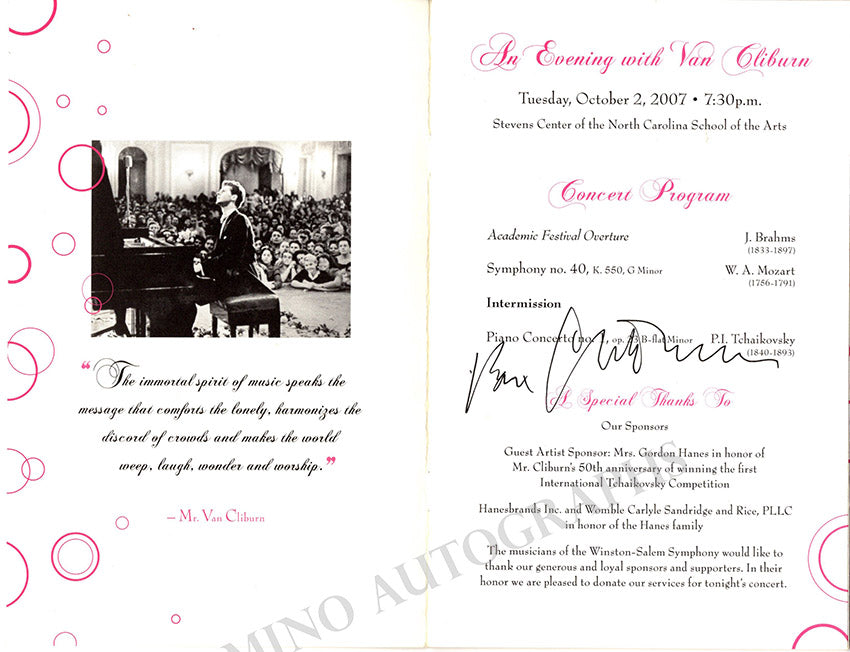 “The immortal spirit of music speaks the
message that comforts the lonely, harmonizes the
discord of crowds and makes the world
weep, laugh, wonder and worship.”
— Mr. Van Cliburn
An Evening with Van Cliburn
Tuesday, October 2, 2007 • 7:30p.m.
Stevens Center of the North Carolina School of the Arts
Concert Program
Academic Festival Overture J. Brahms
(1833-1897)
Symphony no. 40, K. 550, G Minor W. A. Mozart
(1756-1791)
Intermission
Piano Concerto no. 1, op. 23 B-flat Minor P.I. Tchaikovsky
(1840-1893)
Van Cliburn
A Special Thanks To
Our Sponsors
Guest Artist Sponsor: Mrs. Gordon Hanes in honor of
Mr. Cliburn's 50th anniversary of winning the first
International Tchaikovsky Competition
Hanesbrands Inc. and Womble Carlyle Sandridge and Rice, PLLC
in honor of the Hanes family
The musicians of the Winston-Salem Symphony would like to
thank our generous and loyal sponsors and supporters. In their
honor we are pleased to donate our services for tonight's concert.
MINO AUTOGRAPHS